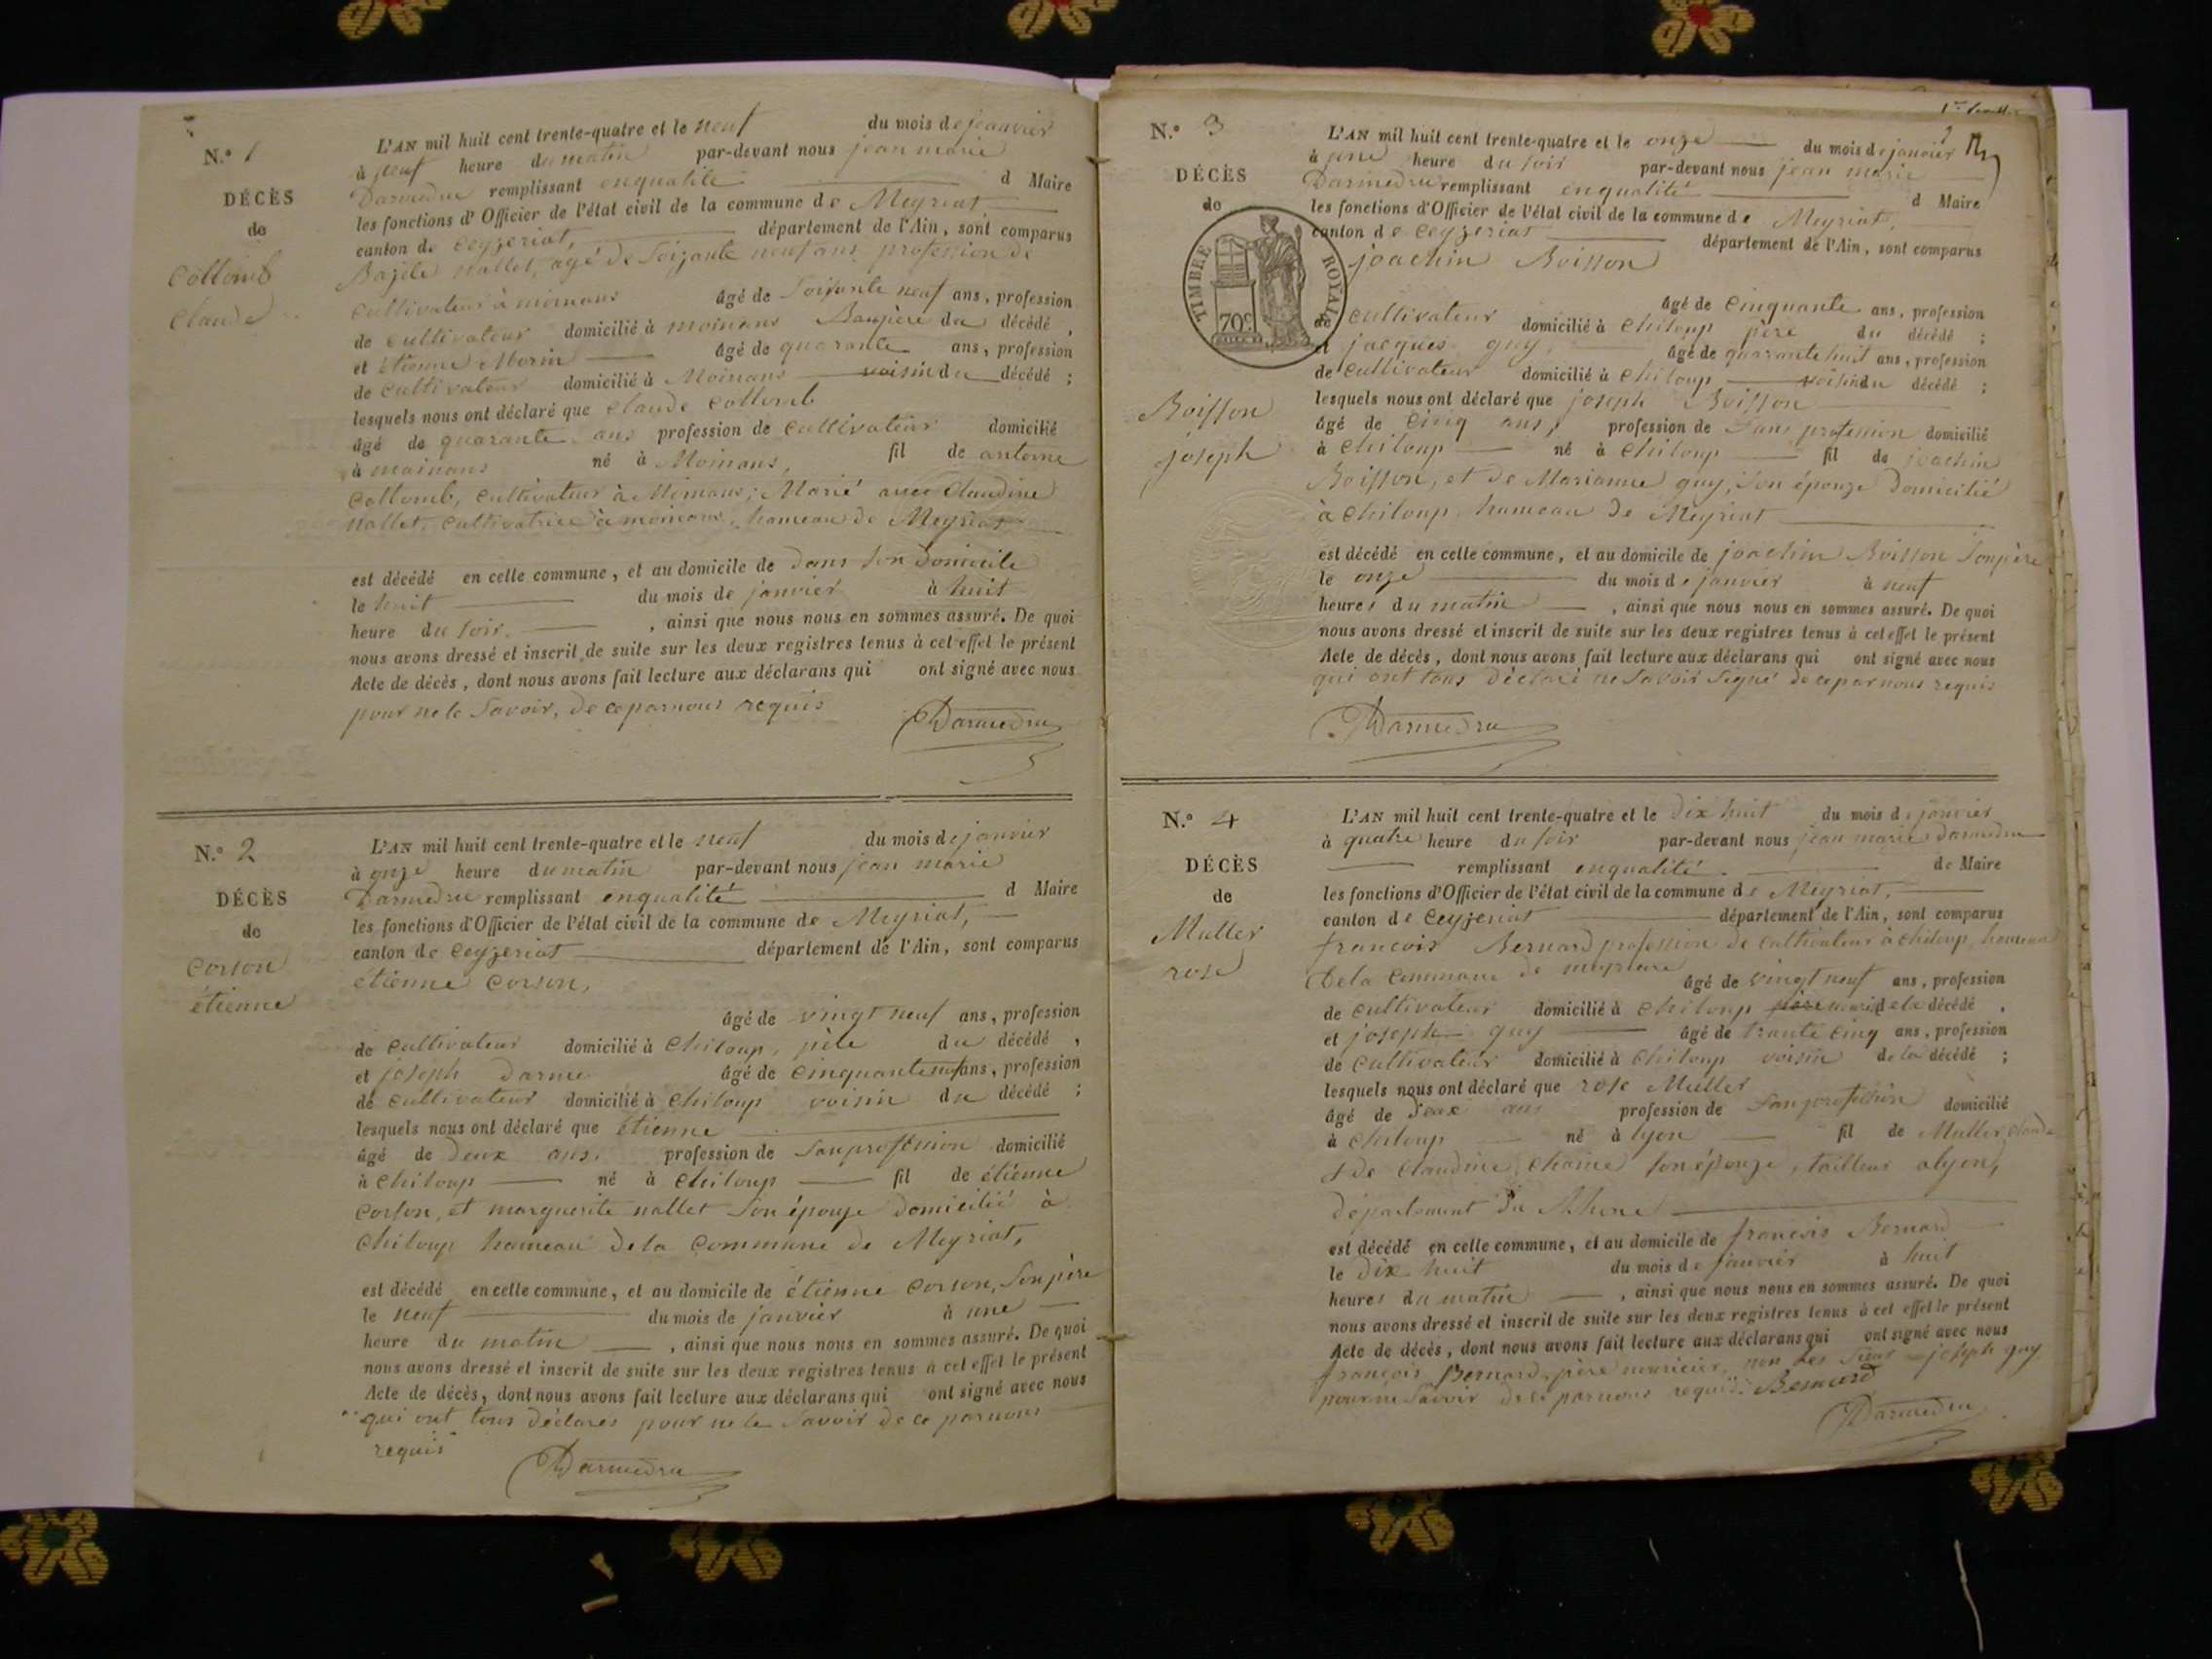 N.º 1
DÉCÈS
de
Collomb
Claude
L'AN mil huit cent trente-quatre et le neuf du mois de janvier
à neuf heure du matin par-devant nous jean marie
Darmedru remplissant enqualité d Maire
les fonctions d'Officier de l'état civil de la commune de Meyriat
canton de Ceyzeriat, département de l'Ain, sont comparus
Bazile nallet, agé de Soizante neuf ans profession de
Cultivateur à moinans âgé de Soixante neuf ans, profession
de cultivateur domicilié à moinans Baupère du décédé,
et étienne Morin âgé de quarante ans, profession
de cultivateur domicilié à Moinans voisin du décédé;
lesquels nous ont déclaré que Claude Collomb
âgé de quarante ans profession de Cultivateur domicilié
à moinans né à Moinans, fil de antoine
Collomb, cultivateur à Moinans; Marié avec Claudine
nallet, cultivatrice à moinans, hameau de Meyriat
est décédé en celle commune, et au domicile de dans Son Domicile
le huit du mois de janvier à huit
heure du soir, ainsi que nous nous en sommes assuré. De quoi
nous avons dressé et inscrit de suite sur les deux registres tenus à cet effet le présent
Acte de décès, dont nous avons fait lecture aux déclarans qui ont signé avec nous
pour ne le Savoir, de ce parnous requis
Darmedru
N.º 2
DÉCÈS
de
Corson
étienne
L'AN mil huit cent trente-quatre et le neuf du mois de janvier
à onze heure du matin par-devant nous jean marie
Darmedru remplissant enqualité d Maire
les fonctions d'Officier de l'état civil de la commune de Meyriat,
canton de Ceyzeriat département de l'Ain, sont comparus
étienne Corson,
âgé de vingt neuf ans, profession
de Cultivateur domicilié à Chiloup, père du décédé,
et joseph darme âgé de cinquante neuf ans, profession
de cultivateur domicilié à Chiloup voisin du décédé;
lesquels nous ont déclaré que étienne
âgé de deux ans. profession de Sanprofession domicilié
à Chiloup né à Chiloup fil de étienne
Corson, et marguerite nallet Son épouze domicilié à
Chiloup hameau dela Commune de Meyriat,
est décédé en celle commune, et au domicile de étienne Corson, Son père
le neuf du mois de janvier à une
heure du matin, ainsi que nous nous en sommes assuré. De quoi
nous avons dressé et inscrit de suite sur les deux registres tenus à cet effet le présent
Acte de décès, dont nous avons fait lecture aux déclarans qui ont signé avec nous
qui ont tous déclarés pour ne le Savoir de ce parnous
requis
Darmedru
N.º 3
DÉCÈS
de
TIMBRE ROYAL
70 c.
Boisson
joseph
L'AN mil huit cent trente-quatre et le onze du mois de janvier
à une heure du soir par-devant nous jean marie
Darmedru remplissant enqualité d Maire
les fonctions d'Officier de l'état civil de la commune de Meyriat,
canton de Ceyzeriat département de l'Ain, sont comparus
joachin Boisson
âgé de Cinquante ans, profession
de Cultivateur domicilié à Chiloup père du décédé;
et jacques guy, âgé de quarrante huit ans, profession
de Cultivateur domicilié à Chiloup voisin du décédé;
lesquels nous ont déclaré que joseph Boisson
âgé de Cinq ans, profession de Sans profession domicilié
à Chiloup né à Chiloup fil de joachin
Boisson, et de Marianne guy, Son épouze Domicilié
à Chiloup, hameau de Meyriat
est décédé en celle commune, et au domicile de joachin Boisson Sonpère
le onze du mois de janvier à neuf
heures du matin, ainsi que nous nous en sommes assuré. De quoi
nous avons dressé et inscrit de suite sur les deux registres tenus à cet effet le présent
Acte de décès, dont nous avons fait lecture aux déclarans qui ont signé avec nous
qui ont tous déclaré ne Savoir Signé de ce par nous requis
Darmedru
N.º 4
DÉCÈS
de
Muller
rose
L'AN mil huit cent trente-quatre et le Dix huit du mois de janvier
à quatre heure du soir par-devant nous jean marie Darmedru
remplissant enqualité de Maire
les fonctions d'Officier de l'état civil de la commune de Meyriat,
canton de Ceyzeriat département de l'Ain, sont comparus
francois Bernard profession de cultivateur à Chiloup, hameau
Dela Commune de âgé de vingt neuf ans, profession
de cultivateur domicilié à Chiloup de la décédé,
et joseph guy âgé de trante cinq ans, profession
de cultivateur domicilié à Chiloup voisin de la décédé;
lesquels nous ont déclaré que rose Muller
âgé de deux ans profession de Sanprofession domicilié
à Chiloup né à lyon fil de Muller Claude
et de Claudine Chaine Son épouze, tailleur alyon,
département du Rhone
est décédé en celle commune, et au domicile de francois Bernard
le Dix huit du mois de janvier à huit
heures du matin, ainsi que nous nous en sommes assuré. De quoi
nous avons dressé et inscrit de suite sur les deux registres tenus à cet effet le présent
Acte de décès, dont nous avons fait lecture aux déclarans qui ont signé avec nous
françois Bernard, père nouricier, non joseph guy
pour ne Savoir de ce parnous requis. Bernard
Darmedru